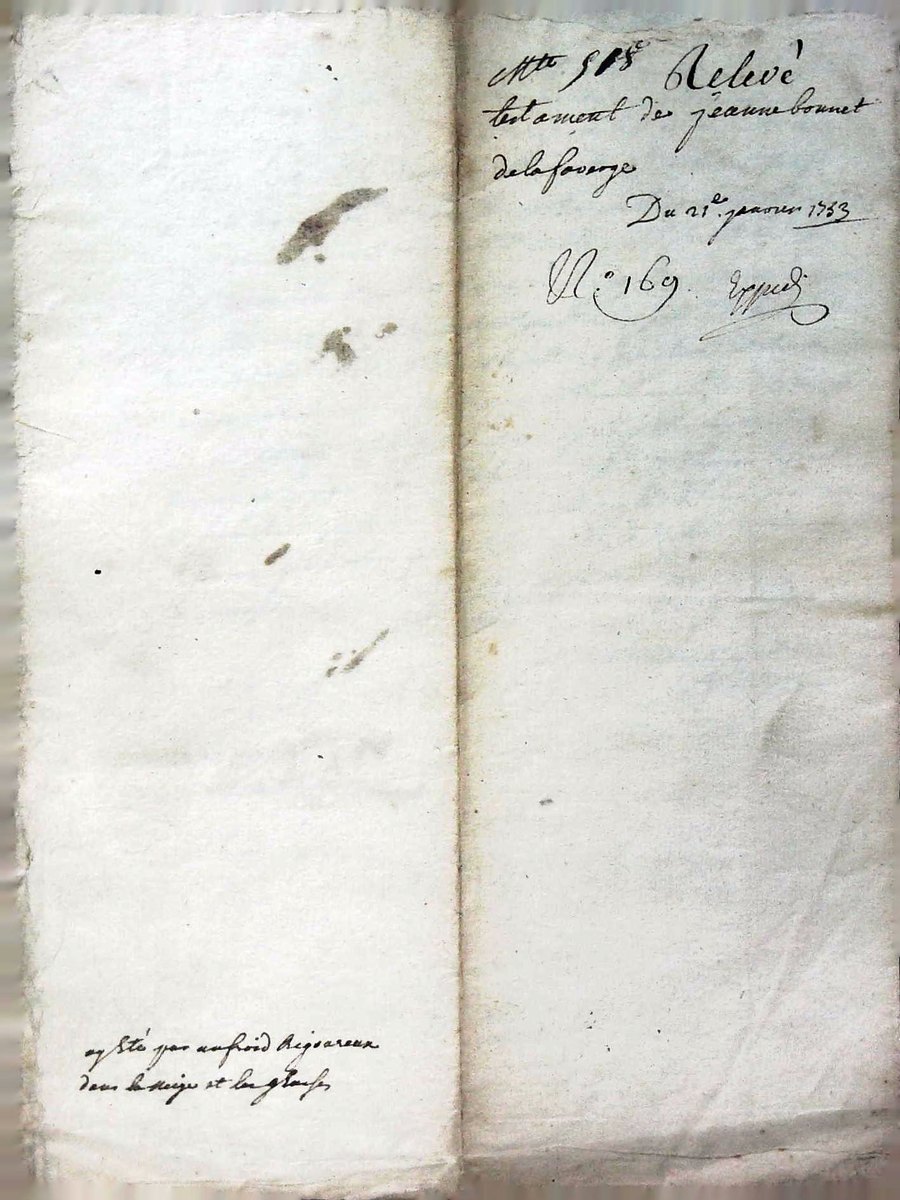 Relevé
testament de jeanne bonnet
de la faverge
Du 21e. janvier 1753
N.o 169. Expedi
par un froid Rigoureux
dans la neige et les glaces